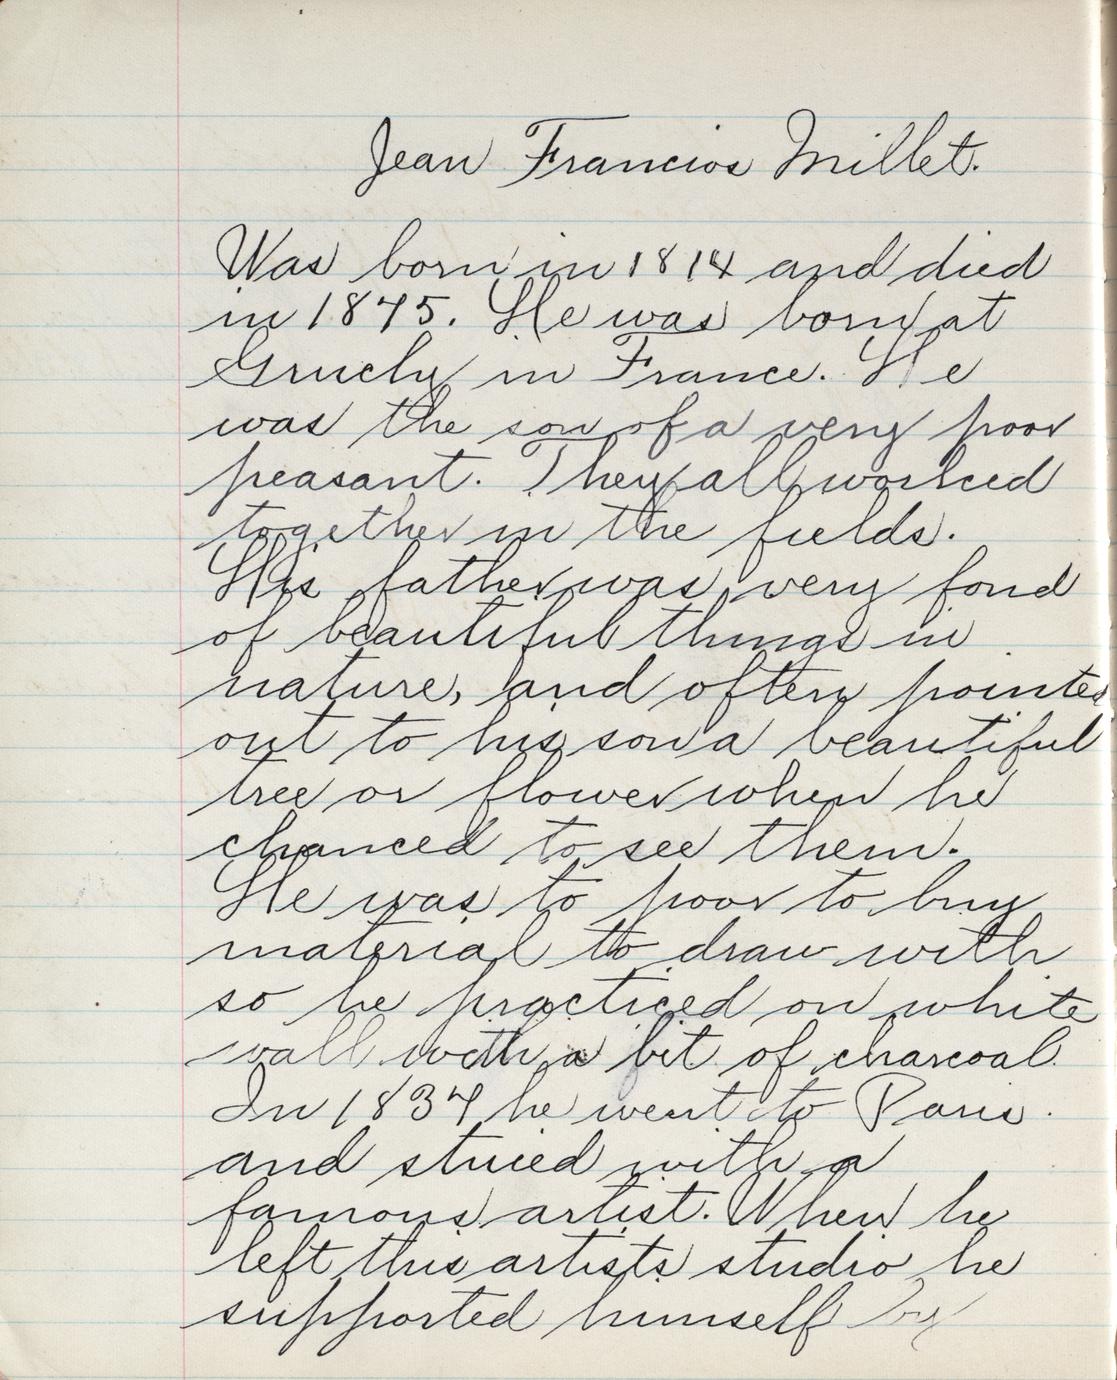 Jean Francios Millet.
Was born in 1814 and died
in 1875. He was born at
Gruchy in France. He
was the son of a very poor
peasant. They all worked
together in the fields.
His father was very fond
of beautiful things in
nature, and often pointed
out to his son a beautiful
tree or flower when he
chanced to see them.
He was to poor to buy
material to draw with
so he practiced on white
wall with a bit of charcoal.
In 1837 he went to Paris.
and stuied with a
famous artist. When he
left this artists studio he
supported himself by